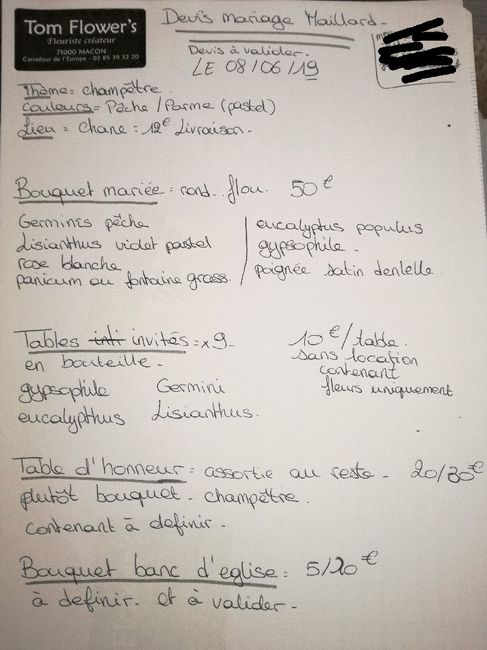 Tom Flower's
Fleuriste créateur
71000 MACON
Carrefour de l'Europe - 03 85 39 32 20
Devis mariage Maillard -
Devis à valider -
LE 08/06/19
Thème = champêtre.
Couleurs = Pêche / Parme (pastel)
Lieu = Chane = 12€ Livraison -
Bouquet mariée = rond flou. 50€
Germinis pêche
Lisianthus violet pastel
rose blanche
panicum ou fontaine grass.
eucalyptus populus
gypsophile -
poignée satin dentelle.
Tables inti invités = x9 -
en bouteille -
gypsophile Germini
eucalypthus Lisianthus.
10€/table.
sans location
contenant
fleurs uniquement
Table d'honneur = assortie au reste - 20/30€
plutôt bouquet - champêtre.
contenant à définir -
Bouquet banc d'eglise = 5/20€
à définir - et à valider -